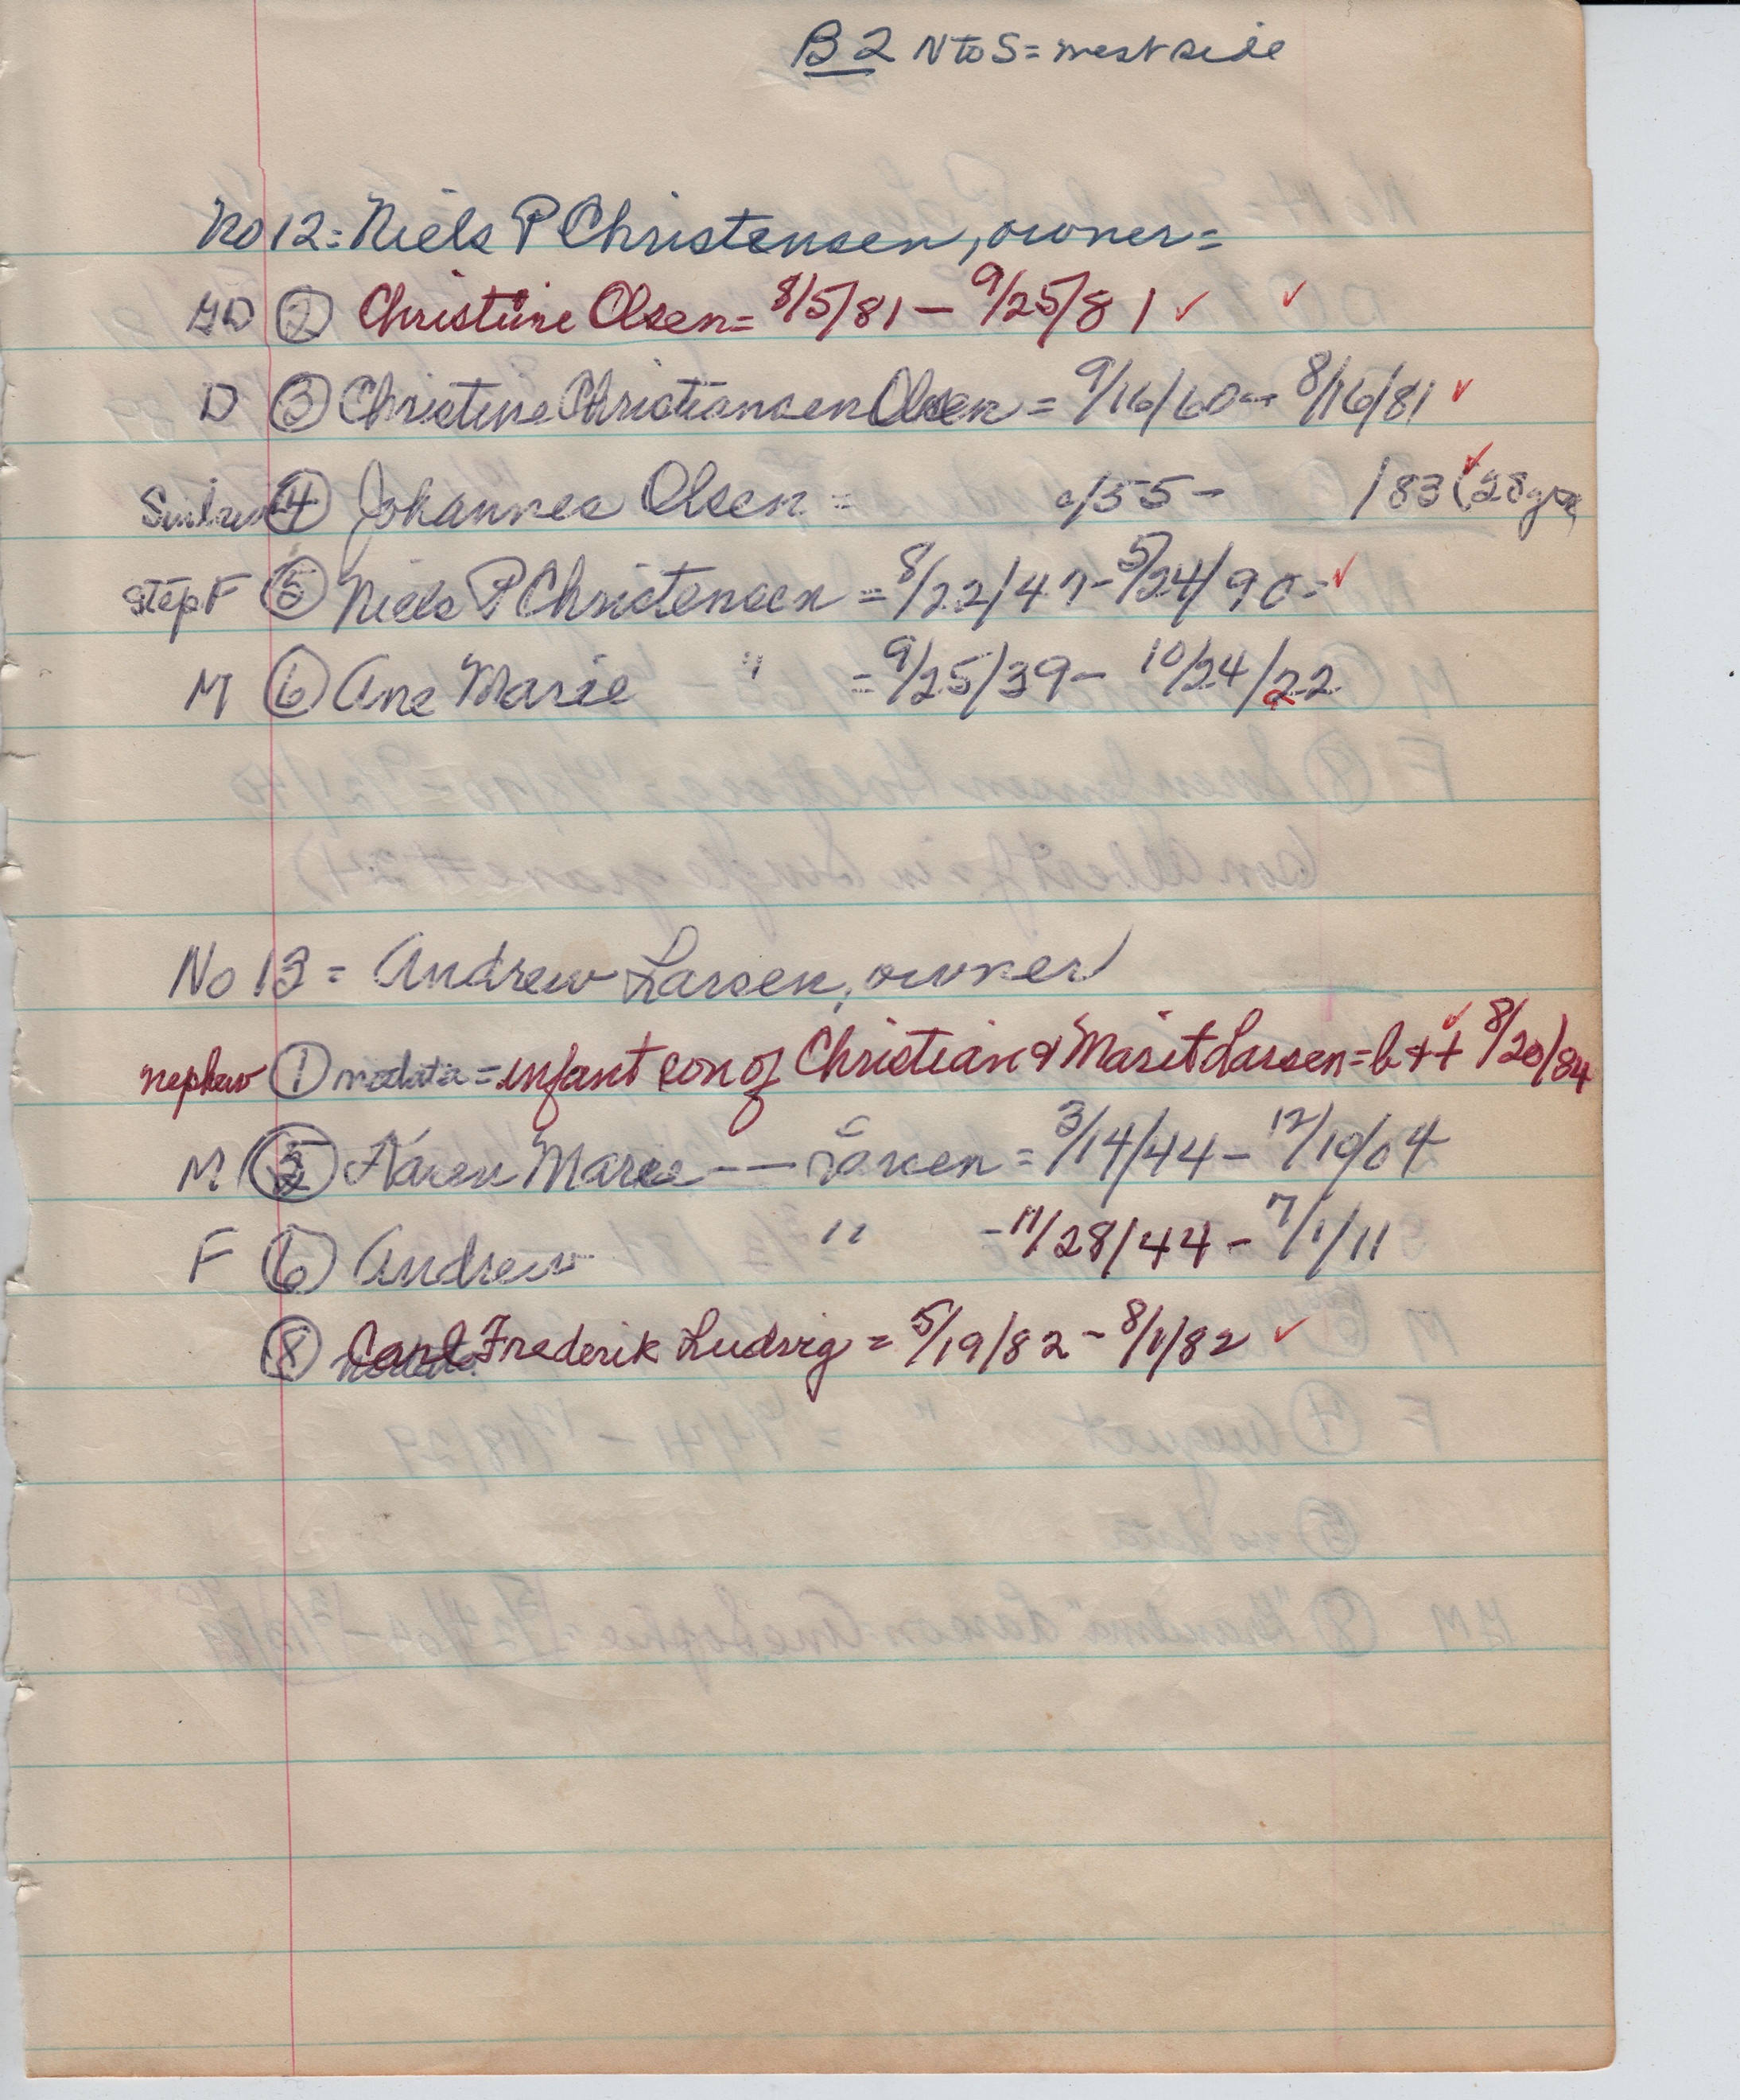 B2 N to S = west side
No 12 = Niels P Christensen, owner =
GD ② Christine Olsen = 8/5/81 – 9/25/81 ✓ ✓
D ③ Christine Christiansen Olsen = 9/16/60 – 8/16/81 ✓
④ Johannes Olsen = 55 – /83 (28 yrs ✓
Step F ⑤ Niels P Christensen = 8/22/47 – 5/24/90 = ✓
M ⑥ Ane Marie " = 9/25/39 – 10/24/22
No 13 = Andrew Larsen, owner
nephew ① nodata = infant son of Christian & Marit Larsen = b + + 8/20/84 ✓
M ⑤ Karen Marie –– Larsen = 3/14/44 – 12/10/04
F ⑥ Andrew " – 11/28/44 – 7/1/11
⑧ Carl Frederik Ludvig = 5/19/82 – 8/1/82 ✓